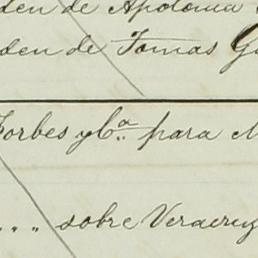 den de Apolonia
den de Tomas G
Forbes y Ca. para M
... sobre Veracruz